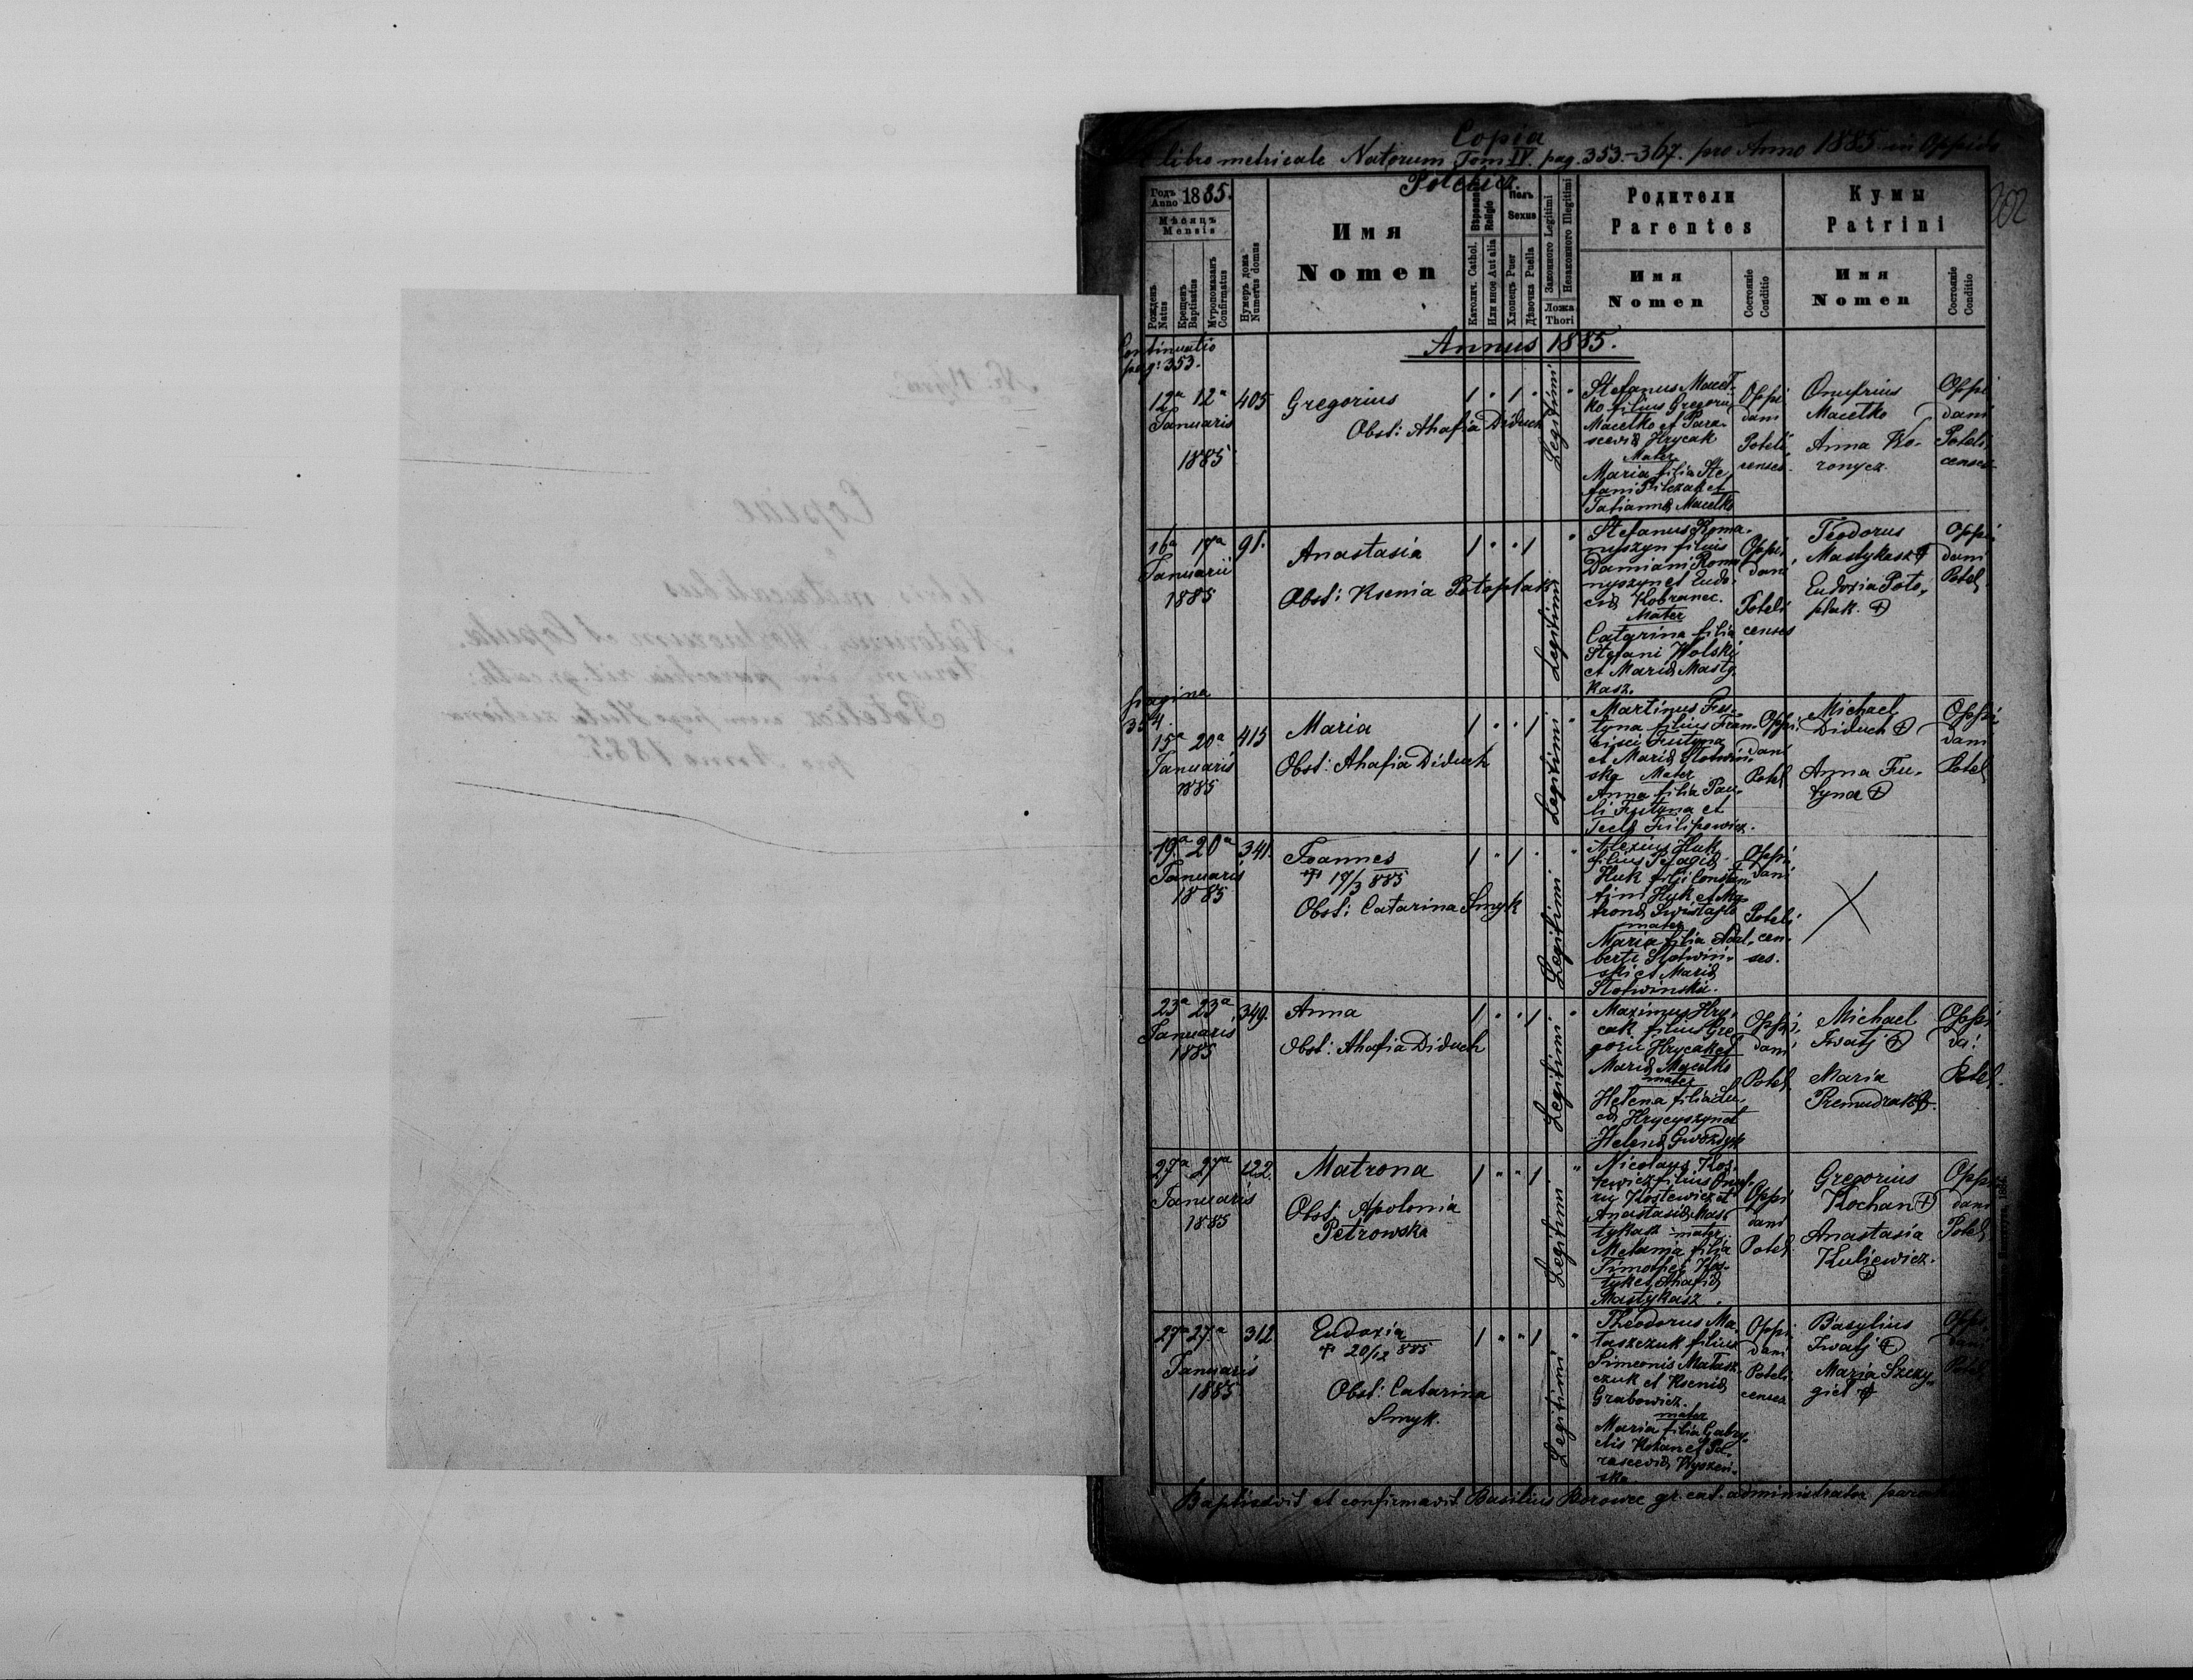 Copia
libro metricale Natorum Tom IV. pag. 353.-367. pro Anno 1885. in Oppido
Potelicz.
202
Годъ
Anno 1885.
Мѣсяцъ
Mensis
Рожденъ
Natus
Крещенъ
Baptisatus
Мѵропомазанъ
Confirmatus
Нумеръ дома
Numerus domus
Имя
Nomen
Religio
Католич. Cathol.
Или иное Aut alia
Полъ
Sexus
Хлопецъ Puer
Дѣвочка Puella
Законного Legitimi
Незаконного Illegitimi
Ложа
Thori
Родители
Parentes
Имя
Nomen
Состояніе
Conditio
Кумы
Patrini
Имя
Nomen
Состояніе
Conditio
Continuatio
pag: 353.
Annus 1885.
12ª 12ª
Januaris
1885
405
Gregorius
Obst: Ahafia Diduch
1 " 1 "
Legitimi
Stefanus Macet-
ko filius Gregorii
Macetko et Para-
scevia Hrycak
Mater
Maria filia Ste
fani Pilczak et
Tatianna Macetko
Oppi
dani
Poteli
censes.
Onufrius
Macetko
Anna Wo-
ronycz.
Oppi
dani
Poteli
censes
16ª 17ª
Januarii
1885
91.
Anastasia
Obst: Ksenia Potoplak
1 " " 1
Legitimi
Stefanus Roma-
nyszyn filius
Damiani Roma
nyszyn et Eudo-
cia Kobranec.
Mater
Catarina filia
Stefani Wolski
et Maria Masty-
kasz.
Oppi
dani
Poteli
censes
Teodorus
Mastykasz +
Eudoxia Poto-
plak. +
Oppi
dani
Potel
pagina
354.
15ª 20ª
Januaris
1885
415
Maria
Obst: Ahafia Diduch
1 " " 1
Legitimi
Martinus Fu-
tyna filius Fran-
cisci Futyna
et Maria Slotwin
ska Mater
Anna filia Pau-
li Futyna et
Tecla Filipowicz.
Oppi
dani
Potel
Michael
Diduch +
Anna Fu-
tyna +
Oppi
dani
Potel
19ª 20ª
Januaris
1885
341.
Joannes
+ 17/3 885
Obst: Catarina Smyk
1 " 1 "
Legitimi
Alexius Huk
filius Pelagia
Huk filii Constan
tini Huk et Ma-
trona Swistajlo
mater
Maria filia Adal-
berti Slotwin-
ski et Maria
Slotwinska.
Oppi
dani
Poteli
cen-
ses.
23ª 23ª
Januaris
1885
349.
Anna
Obst: Ahafia Diduch
1 " " 1
Legitimi
Maximus Hry-
cak filius Gre
gorii Hrycak et
Maria Macetko
mater
Helena filia Lu-
ca Hrycyszyn et
Helena Gwozdyk
Oppi
dani
Potel
Michael
Iwatj +
Maria
Premudrak +
Oppi
da:
Potel.
27ª 27ª
Januaris
1885
122.
Matrona
Obst. Apolonia
Petrowska
1 " " 1 "
Legitimi
Nicolaus Kos-
tewicz filius Onuf-
ry Kostewicz et
Anastasia Mas-
tykasz mater
Melania filia
Timothei Kos-
tyk et Ahafia
Mastykasz.
Oppi
dani
Potel.
Gregorius
Kochan +
Anastasia
Kuliewicz.
+
Oppi
dani
Potel
27ª 27ª
Januaris
1885
312
Eudoxia
+ 20/12 885
Obst: Catarina
Smyk.
1 " " 1 "
Legitimi
Theodorus Ma-
taszczuk filius
Simeonis Matasz-
czuk et Ksenia
Grabowicz.
mater
Maria filia Gabry-
elis Kohan et Pa-
rascevia Wyszen-
ska
Oppi
dani
Poteli
censes
Basylius
Iwatj +
Maria Szczy-
giel +
Oppi
dani
Potel
Baptisavit et confirmavit Basilius Borowec gr. cat. administrator
Copiae
Natorum, Mortuorum et Copula-
torum in parochia rit. gr. cath:
pro Anno 1885